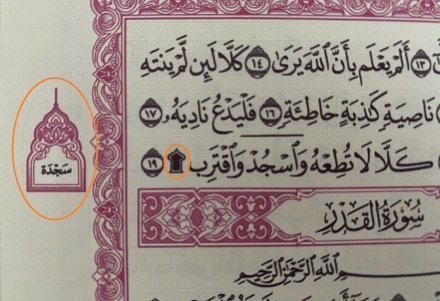 ١٣ أَلَمْ يَعْلَم بِأَنَّ ٱللَّهَ يَرَىٰ ١٤ كَلَّا لَئِن لَّمْ يَنتَهِ
نَاصِيَةٍ كَٰذِبَةٍ خَاطِئَةٍ ١٦ فَلْيَدْعُ نَادِيَهُۥ ١٧
كَلَّا لَا تُطِعْهُ وَٱسْجُدْ وَٱقْتَرِب ۩ ١٩
سَجْدَة
سُورَةُ ٱلْقَدْرِ
ٱللَّهِ ٱلرَّحْمَٰنِ ٱلرَّحِيمِ